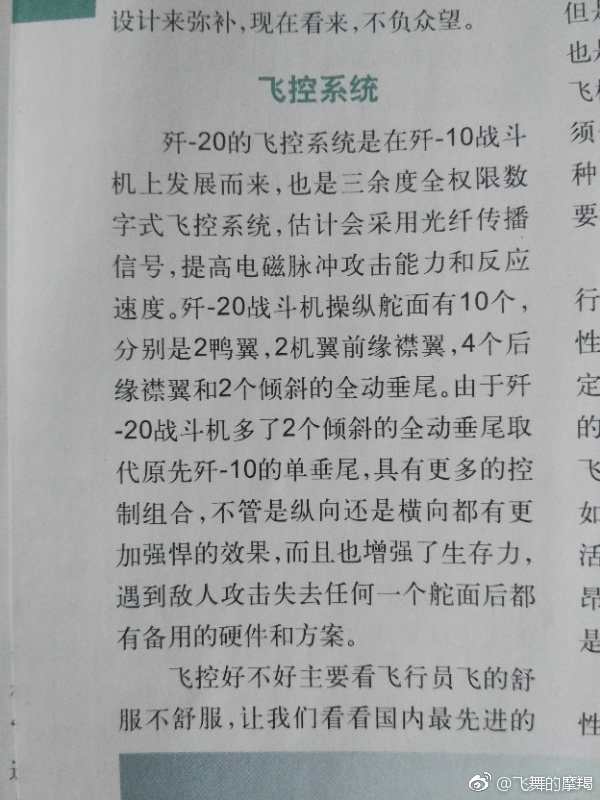 设计来弥补,现在看来,不负众望。
飞控系统
歼-20的飞控系统是在歼-10战斗
机上发展而来,也是三余度全权限数
字式飞控系统,估计会采用光纤传播
信号,提高电磁脉冲攻击能力和反应
速度。歼-20战斗机操纵舵面有10个,
分别是2鸭翼,2机翼前缘襟翼,4个后
缘襟翼和2个倾斜的全动垂尾。由于歼
-20战斗机多了2个倾斜的全动垂尾取
代原先歼-10的单垂尾,具有更多的控
制组合,不管是纵向还是横向都有更
加强悍的效果,而且也增强了生存力,
遇到敌人攻击失去任何一个舵面后都
有备用的硬件和方案。
飞控好不好主要看飞行员飞的舒
服不舒服,让我们看看国内最先进的
但是
也
飞
须
种
要
行
性
定
的
飞
如
活
昂
是
性
@飞舞的摩羯